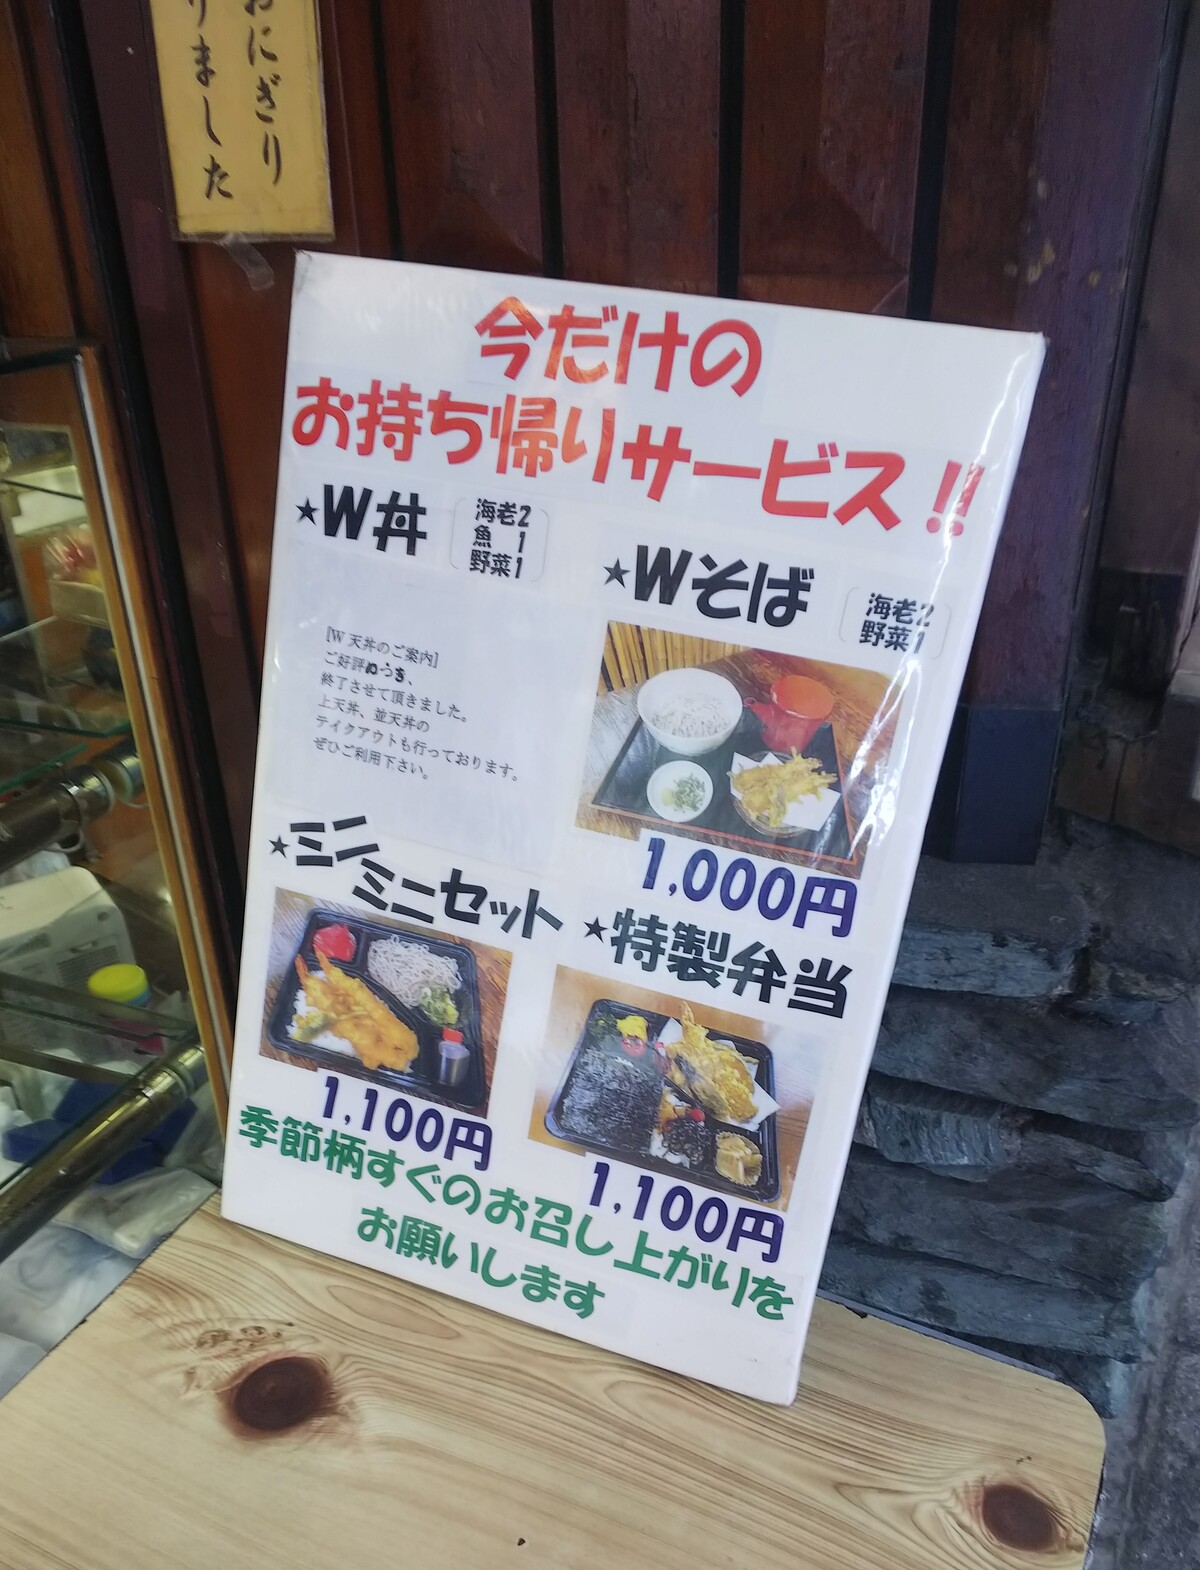 おにぎり
りました
今だけの
お持ち帰りサービス!!
★W丼
海老2
魚 1
野菜1
[W 天丼のご案内]
ご好評につき、
終了させて頂きました。
上天丼、並天丼の
テイクアウトも行っております。
ぜひご利用下さい。
★Wそば
海老2
野菜1
1,000円
★ミニ
ミニセット
1,100円
★特製弁当
1,100円
季節柄すぐのお召し上がりを
お願いします